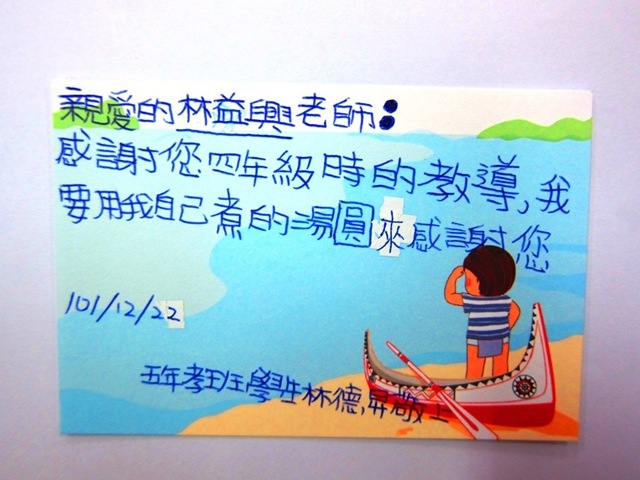 親愛的林益興老師：
感謝您四年級時的教導，我
要用我自己煮的湯圓來感謝您
101/12/22
五年孝班學生林德昇敬上